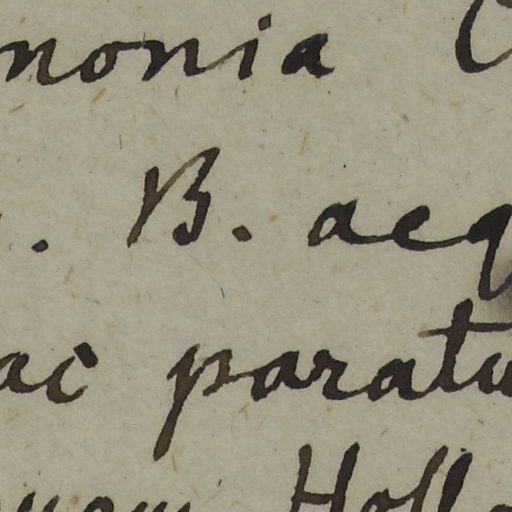 nonia C
. B. acq
ac paratu
uam Holl